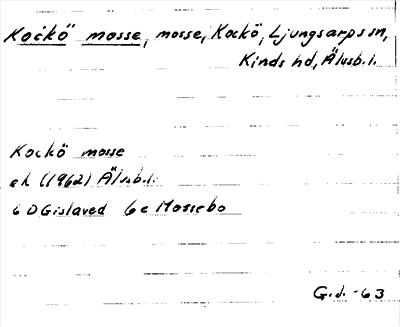 Kockö mosse, mosse, Kockö, Ljungsarps sn,
Kinds hd, Älvsb.l.
Kockö mosse
ek (1962) Älvsb.l.
6 D Gislaved 6e Mossebo
G.J. -63